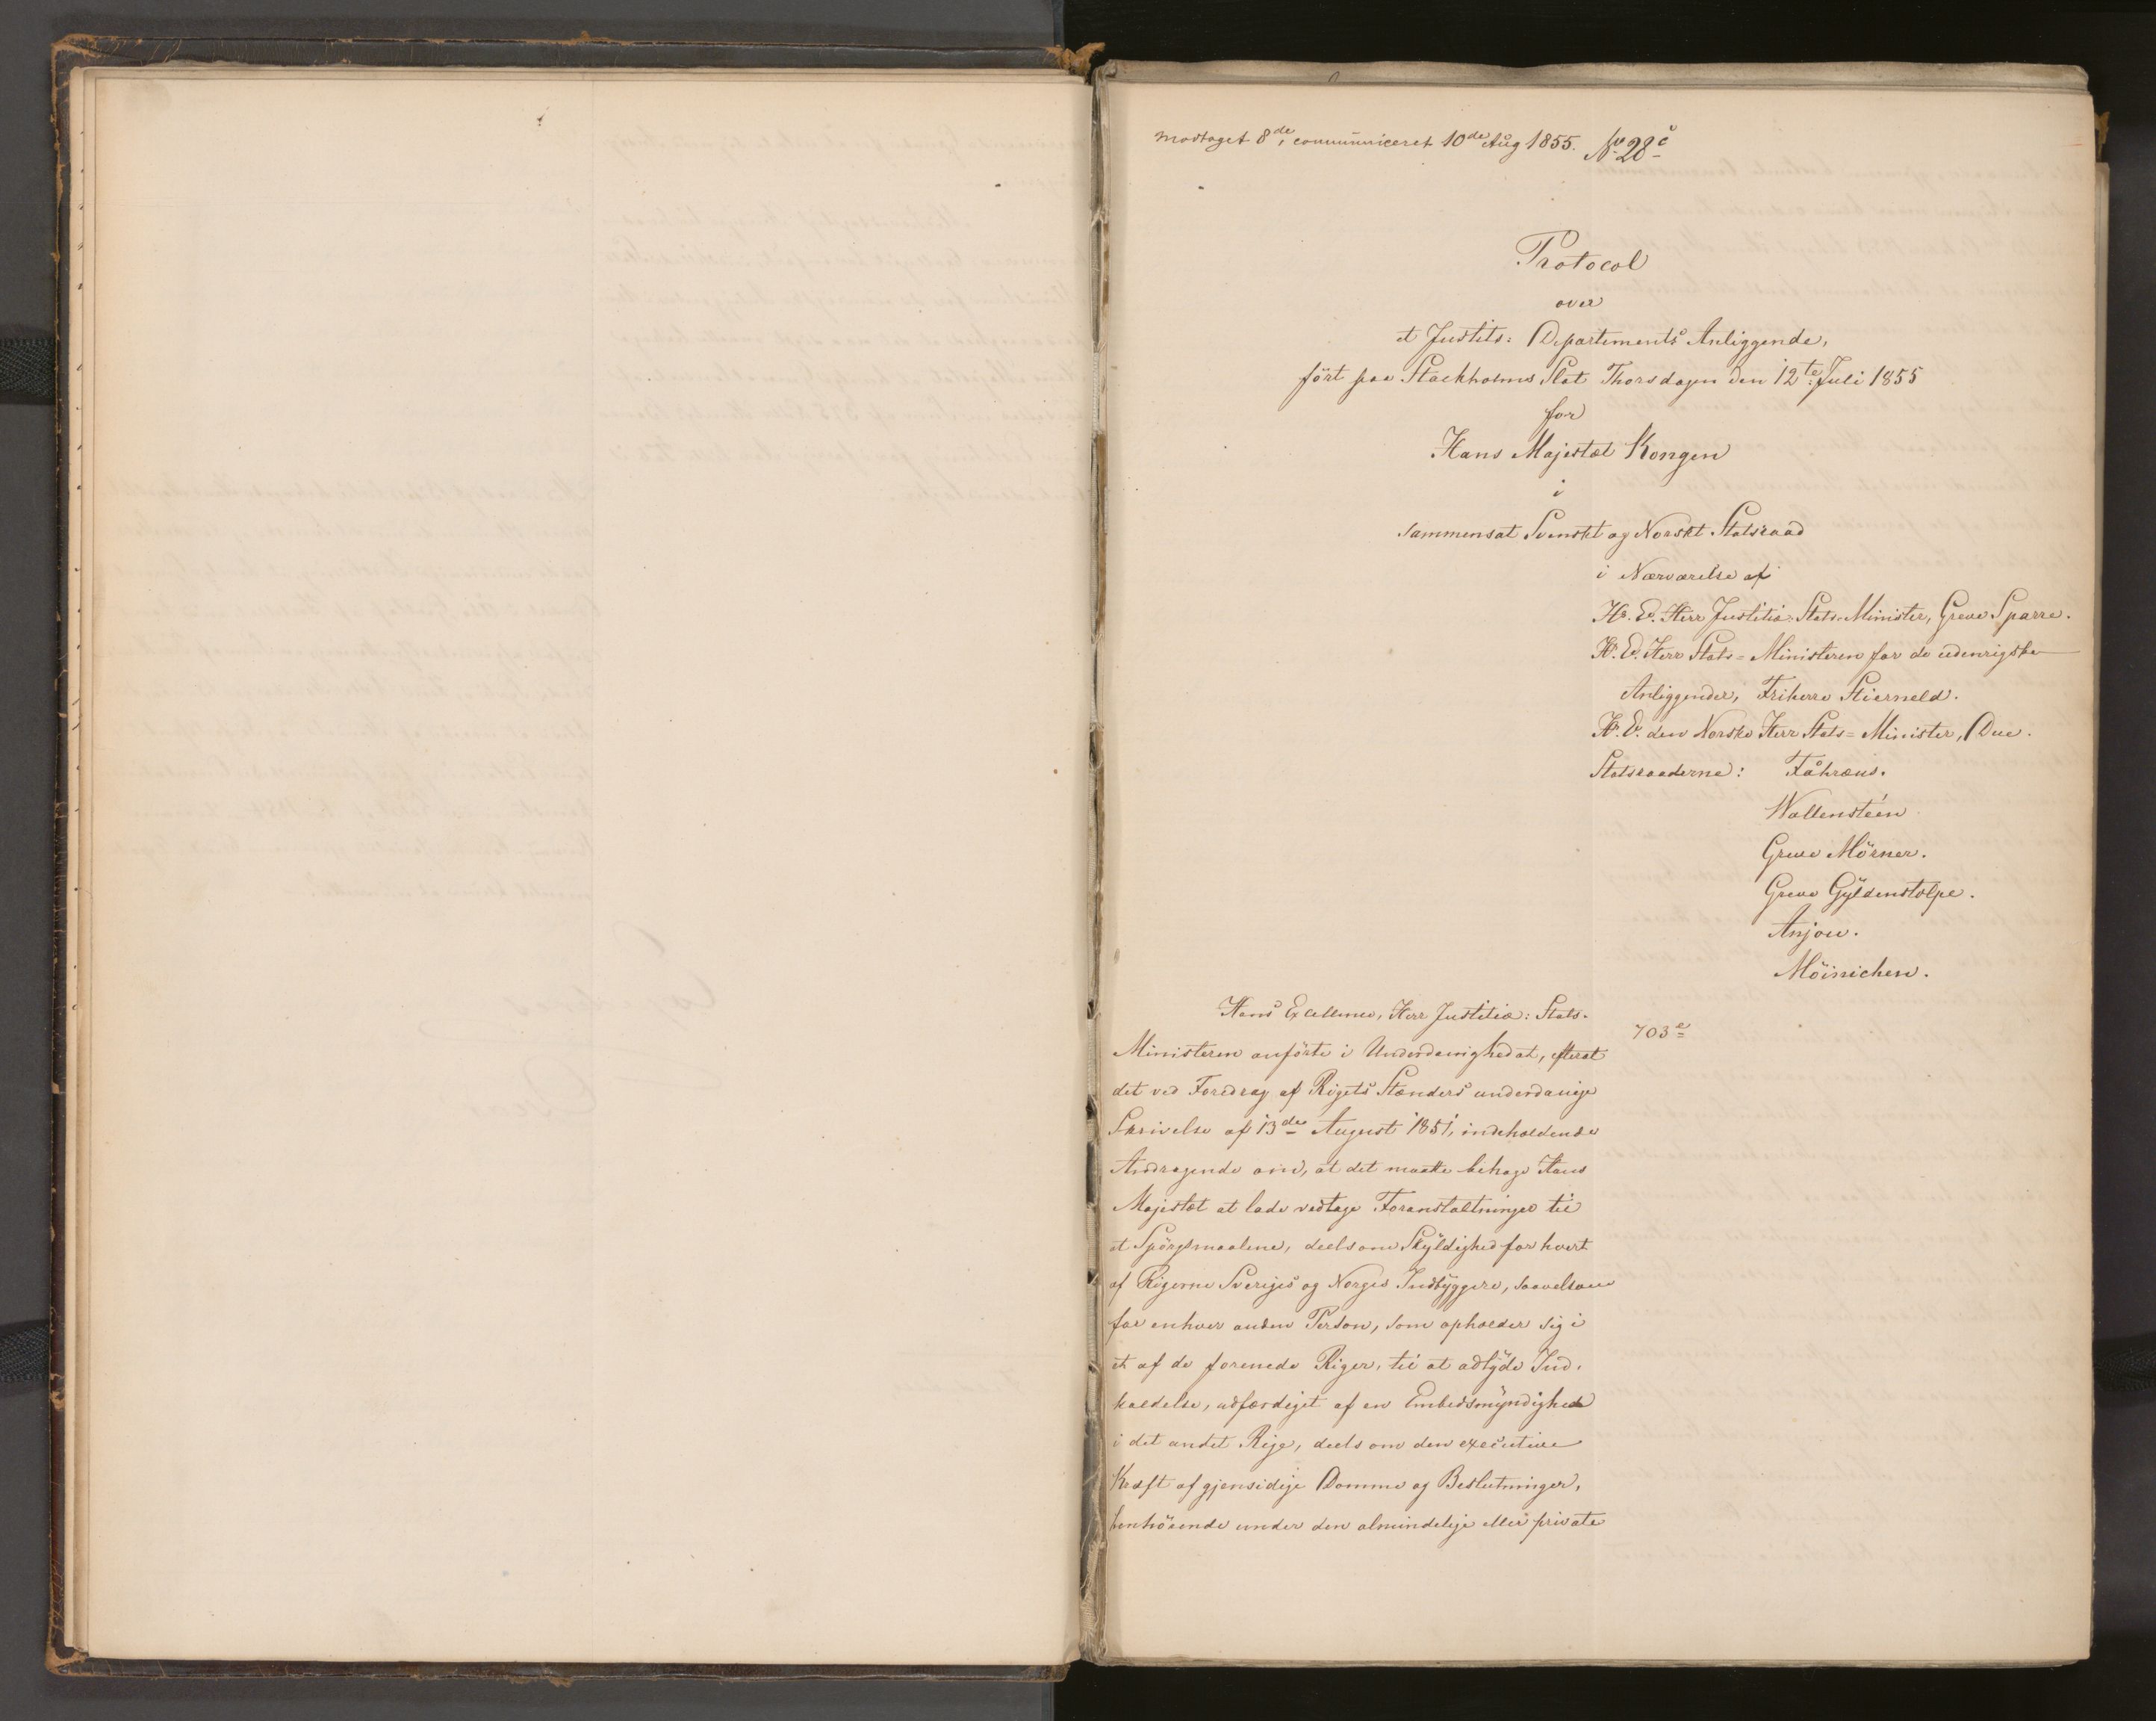 modtaget 8de, communiceret 10de Aug 1855. No 28c
Protocol
over
et Justits: Departements Anliggende,
fört paa Stockholms Slot Thorsdagen den 12te Juli 1855
for
Hans Majestæt Kongen
i
sammensat Svenskt og Norskt Statsraad
i Nærværelse af
Hs. E. Herr Justitiæ-Stats-Minister, Greve Sparre.
H. E. Herr Stats-Ministeren for de udenrigske
Anliggender, Friherre Stierneld.
H. E. den Norske Herr Stats-Minister, Due.
Statsraaderne: Fåhræus.
Wallensteén
Greve Mörner.
Greve Gyldenstolpe.
Anjou.
Möinichen.
Hans Excellence, Herr Justitiæ: Stats-
703e
Ministeren anförte i Underdanighed at, efterat
det ved Foredrag af Rigets Stænders underdanige
Skrivelse af 13de August 1851, indeholdende
Andragende om, at det maatte behage Hans
Majestæt at lade vedtage Foranstaltninger til
at Spörgsmaalene, deels om Skyldighed for hvert
af Rigerne Sveriges og Norges Indbyggere, saavelsom
for enhver anden Person, som opholder sig i
et af de forenede Riger, til at adlyde Ind-
kaldelse, udfærdiget af en Embedsmyndighed
i det andet Rige, deels om den executive
Kraft af gjensidige Domme og Beslutninger,
henhörende under den almindelige eller private